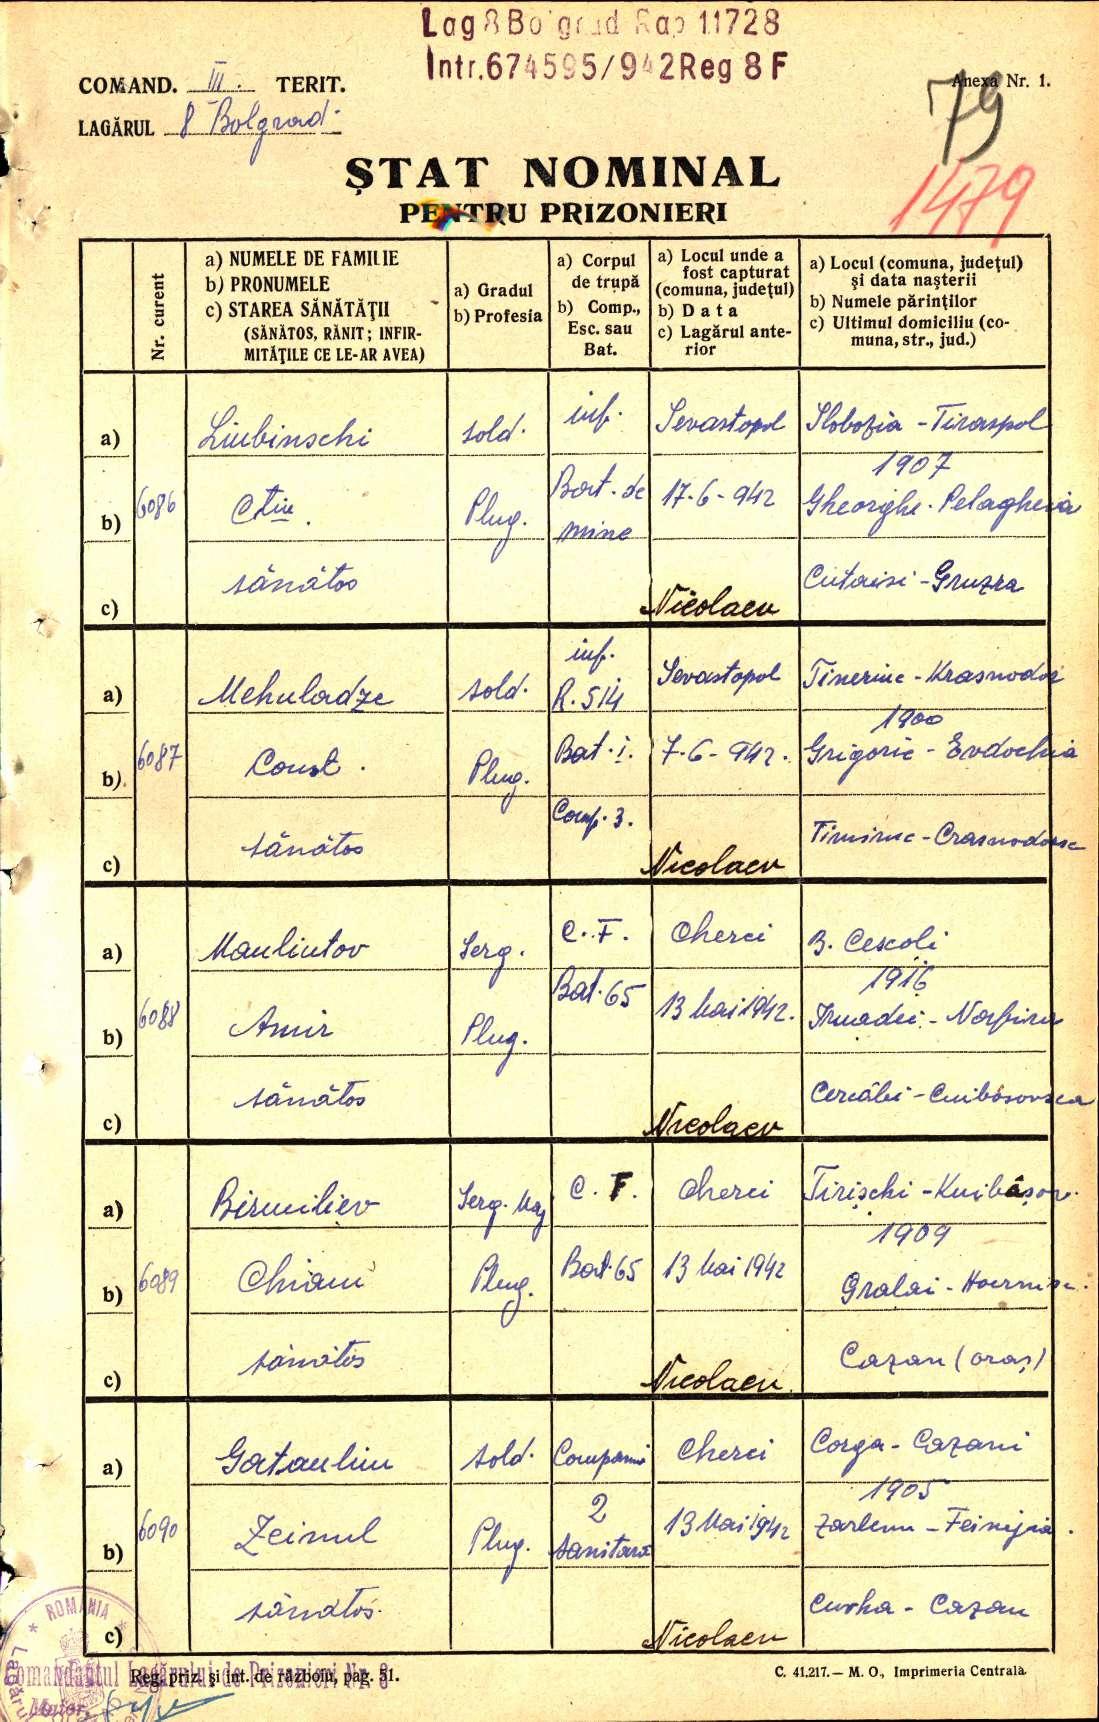 Lag 8 Bolgrad Rap 11728
Intr.674595/942 Reg 8 F
COMAND. III. TERIT.
Anexa Nr. 1.
79
LAGĂRUL 8 Bolgrad
1479
ȘTAT NOMINAL
PENTRU PRIZONIERI
Nr. curent
a) NUMELE DE FAMILIE
b) PRONUMELE
c) STAREA SĂNĂTĂȚII
(SĂNĂTOS, RĂNIT; INFIR-
MITĂȚILE CE LE-AR AVEA)
a) Gradul
b) Profesia
a) Corpul
de trupă
b) Comp.,
Esc. sau
Bat.
a) Locul unde a
fost capturat
(comuna, județul)
b) Data
c) Lagărul ante-
rior
a) Locul (comuna, județul)
și data nașterii
b) Numele părinților
c) Ultimul domiciliu (co-
muna, str., jud.)
a) Liubinschi sold. inf. Sevastopol Slobozia - Tiraspol
1907
6086 b) Ctin. Plug. Bat. de mine 17-6-942 Gheorghe - Pelagheia
c) sănătos Nicolaev Cutaisi - Gruzia
a) Mehuladze sold. inf. R. 514 Sevastopol Timeriuc - Krasnodor
1900
6087 b) Const. Plug. Bat. i. 7-6-942. Grigorie - Evdochia
Comp. 3.
c) sănătos Nicolaev Timiriuc - Crasnodorsc
a) Mauliutov Serg. C. F. Cherci B. Cescoli
1916
6088 b) Amir Plug. Bat. 65 13 Mai 1942.
c) sănătos Nicolaev
a) Birmiliev Serg. Maj C. F. Cherci Tirischi - Kuibâșov.
1909
6089 b) Chiam Plug. Bat. 65 13 Mai 1942 Gralai
c) sănătos Nicolaev Cazan (oraș)
a) Gataulin sold. Compania Cherci Corga - Cazani
1905
6090 b) Zeinul Plug. 2 sanitara 13 Mai 1942
c) sănătos. Nicolaev Curha - Cazan
ROMANIA
Comandantul Lagărului de Prizonieri Nr. 8
Maior,
Reg. priz. și int. de războiu, pag. 51.
C. 41.217. — M. O., Imprimeria Centrală.